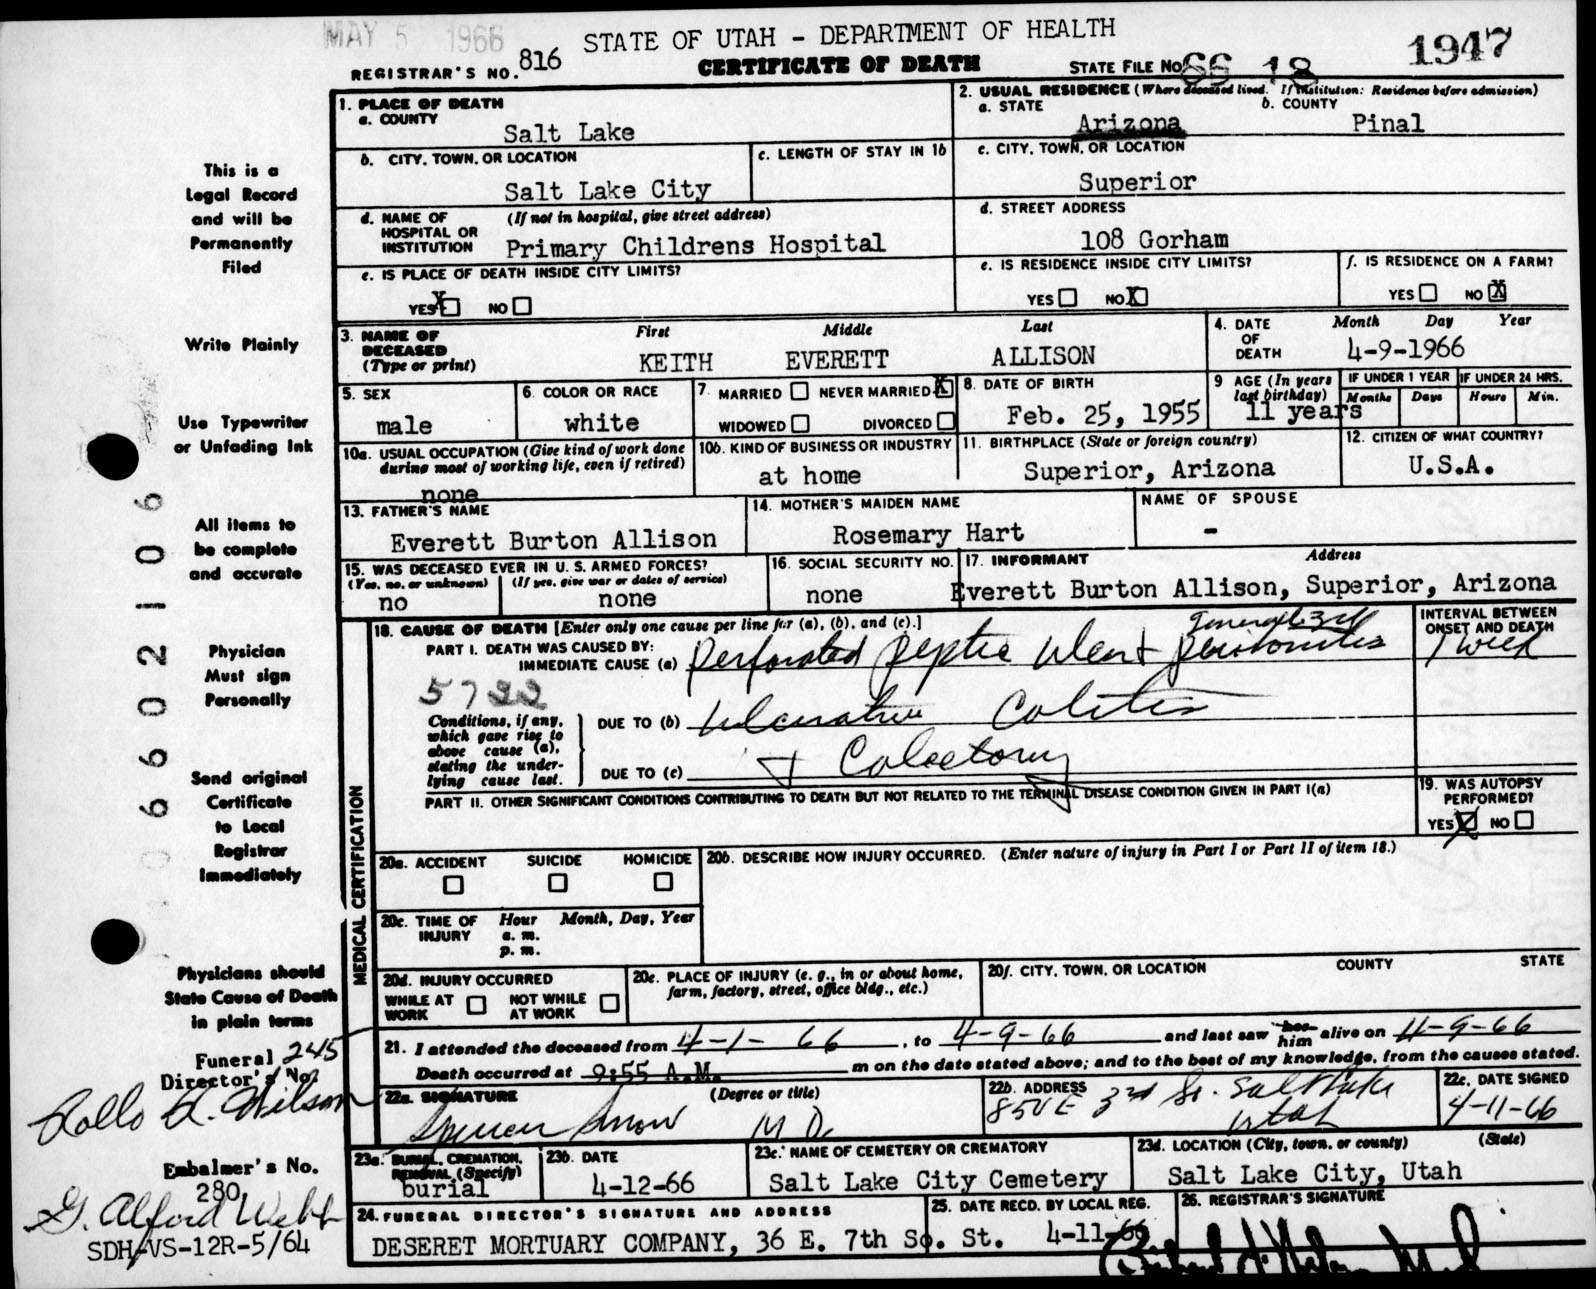 MAY 5 1966
STATE OF UTAH - DEPARTMENT OF HEALTH
REGISTRAR'S NO. 816
CERTIFICATE OF DEATH
STATE FILE NO. 66 18 1947
1. PLACE OF DEATH
a. COUNTY
Salt Lake
2. USUAL RESIDENCE (Where deceased lived. If institution: Residence before admission)
a. STATE b. COUNTY
Arizona Pinal
b. CITY, TOWN, OR LOCATION
Salt Lake City
c. LENGTH OF STAY IN 1b
c. CITY, TOWN, OR LOCATION
Superior
d. NAME OF HOSPITAL OR INSTITUTION (If not in hospital, give street address)
Primary Childrens Hospital
d. STREET ADDRESS
108 Gorham
e. IS PLACE OF DEATH INSIDE CITY LIMITS?
YES X NO
e. IS RESIDENCE INSIDE CITY LIMITS?
YES NO X
f. IS RESIDENCE ON A FARM?
YES NO X
3. NAME OF DECEASED (Type or print)
First Middle Last
KEITH EVERETT ALLISON
4. DATE OF DEATH
Month Day Year
4-9-1966
5. SEX
male
6. COLOR OR RACE
white
7. MARRIED NEVER MARRIED X
WIDOWED DIVORCED
8. DATE OF BIRTH
Feb. 25, 1955
9 AGE (In years last birthday)
11 years
IF UNDER 1 YEAR
Months Days
IF UNDER 24 HRS.
Hours Min.
10a. USUAL OCCUPATION (Give kind of work done during most of working life, even if retired)
none
10b. KIND OF BUSINESS OR INDUSTRY
at home
11. BIRTHPLACE (State or foreign country)
Superior, Arizona
12. CITIZEN OF WHAT COUNTRY?
U.S.A.
13. FATHER'S NAME
Everett Burton Allison
14. MOTHER'S MAIDEN NAME
Rosemary Hart
NAME OF SPOUSE
-
15. WAS DECEASED EVER IN U. S. ARMED FORCES?
(Yes, no, or unknown) (If yes, give war or dates of service)
no none
16. SOCIAL SECURITY NO.
none
17. INFORMANT Address
Everett Burton Allison, Superior, Arizona
MEDICAL CERTIFICATION
18. CAUSE OF DEATH [Enter only one cause per line for (a), (b), and (c).]
PART I. DEATH WAS CAUSED BY:
IMMEDIATE CAUSE (a) Perforated peptic ulcer + generalized peritonitis
INTERVAL BETWEEN ONSET AND DEATH
1 week
5722
Conditions, if any, which gave rise to above cause (a), stating the underlying cause last.
DUE TO (b) Ulcerative Colitis
DUE TO (c) + Colectomy
PART II. OTHER SIGNIFICANT CONDITIONS CONTRIBUTING TO DEATH BUT NOT RELATED TO THE TERMINAL DISEASE CONDITION GIVEN IN PART I(a)
19. WAS AUTOPSY PERFORMED?
YES X NO
20a. ACCIDENT SUICIDE HOMICIDE
20b. DESCRIBE HOW INJURY OCCURRED. (Enter nature of injury in Part I or Part II of item 18.)
20c. TIME OF INJURY
Hour Month, Day, Year
a. m.
p. m.
20d. INJURY OCCURRED
WHILE AT WORK NOT WHILE AT WORK
20e. PLACE OF INJURY (e. g., in or about home, farm, factory, street, office bldg., etc.)
20f. CITY, TOWN, OR LOCATION COUNTY STATE
21. I attended the deceased from 4-1-66, to 4-9-66 and last saw her him alive on 4-9-66
Death occurred at 9:55 A.M. m on the date stated above; and to the best of my knowledge, from the causes stated.
22a. SIGNATURE (Degree or title)
Spencer Snow M D
22b. ADDRESS
850 E 3rd So. Salt Lake
Utah
22c. DATE SIGNED
4-11-66
23a. BURIAL, CREMATION, REMOVAL, (Specify)
burial
23b. DATE
4-12-66
23c. NAME OF CEMETERY OR CREMATORY
Salt Lake City Cemetery
23d. LOCATION (City, town, or county) (State)
Salt Lake City, Utah
24. FUNERAL DIRECTOR'S SIGNATURE AND ADDRESS
DESERET MORTUARY COMPANY, 36 E. 7th So. St.
25. DATE RECD. BY LOCAL REG.
4-11-66
26. REGISTRAR'S SIGNATURE
This is a
Legal Record
and will be
Permanently
Filed
Write Plainly
Use Typewriter
or Unfading Ink
All items to
be complete
and accurate
Physician
Must sign
Personally
Send original
Certificate
to Local
Registrar
Immediately
Physicians should
State Cause of Death
in plain terms
Funeral Director's No. 245
Rollo R. Wilson
Embalmer's No.
280
G. Alford Webb
SDH-VS-12R-5/64
06602106